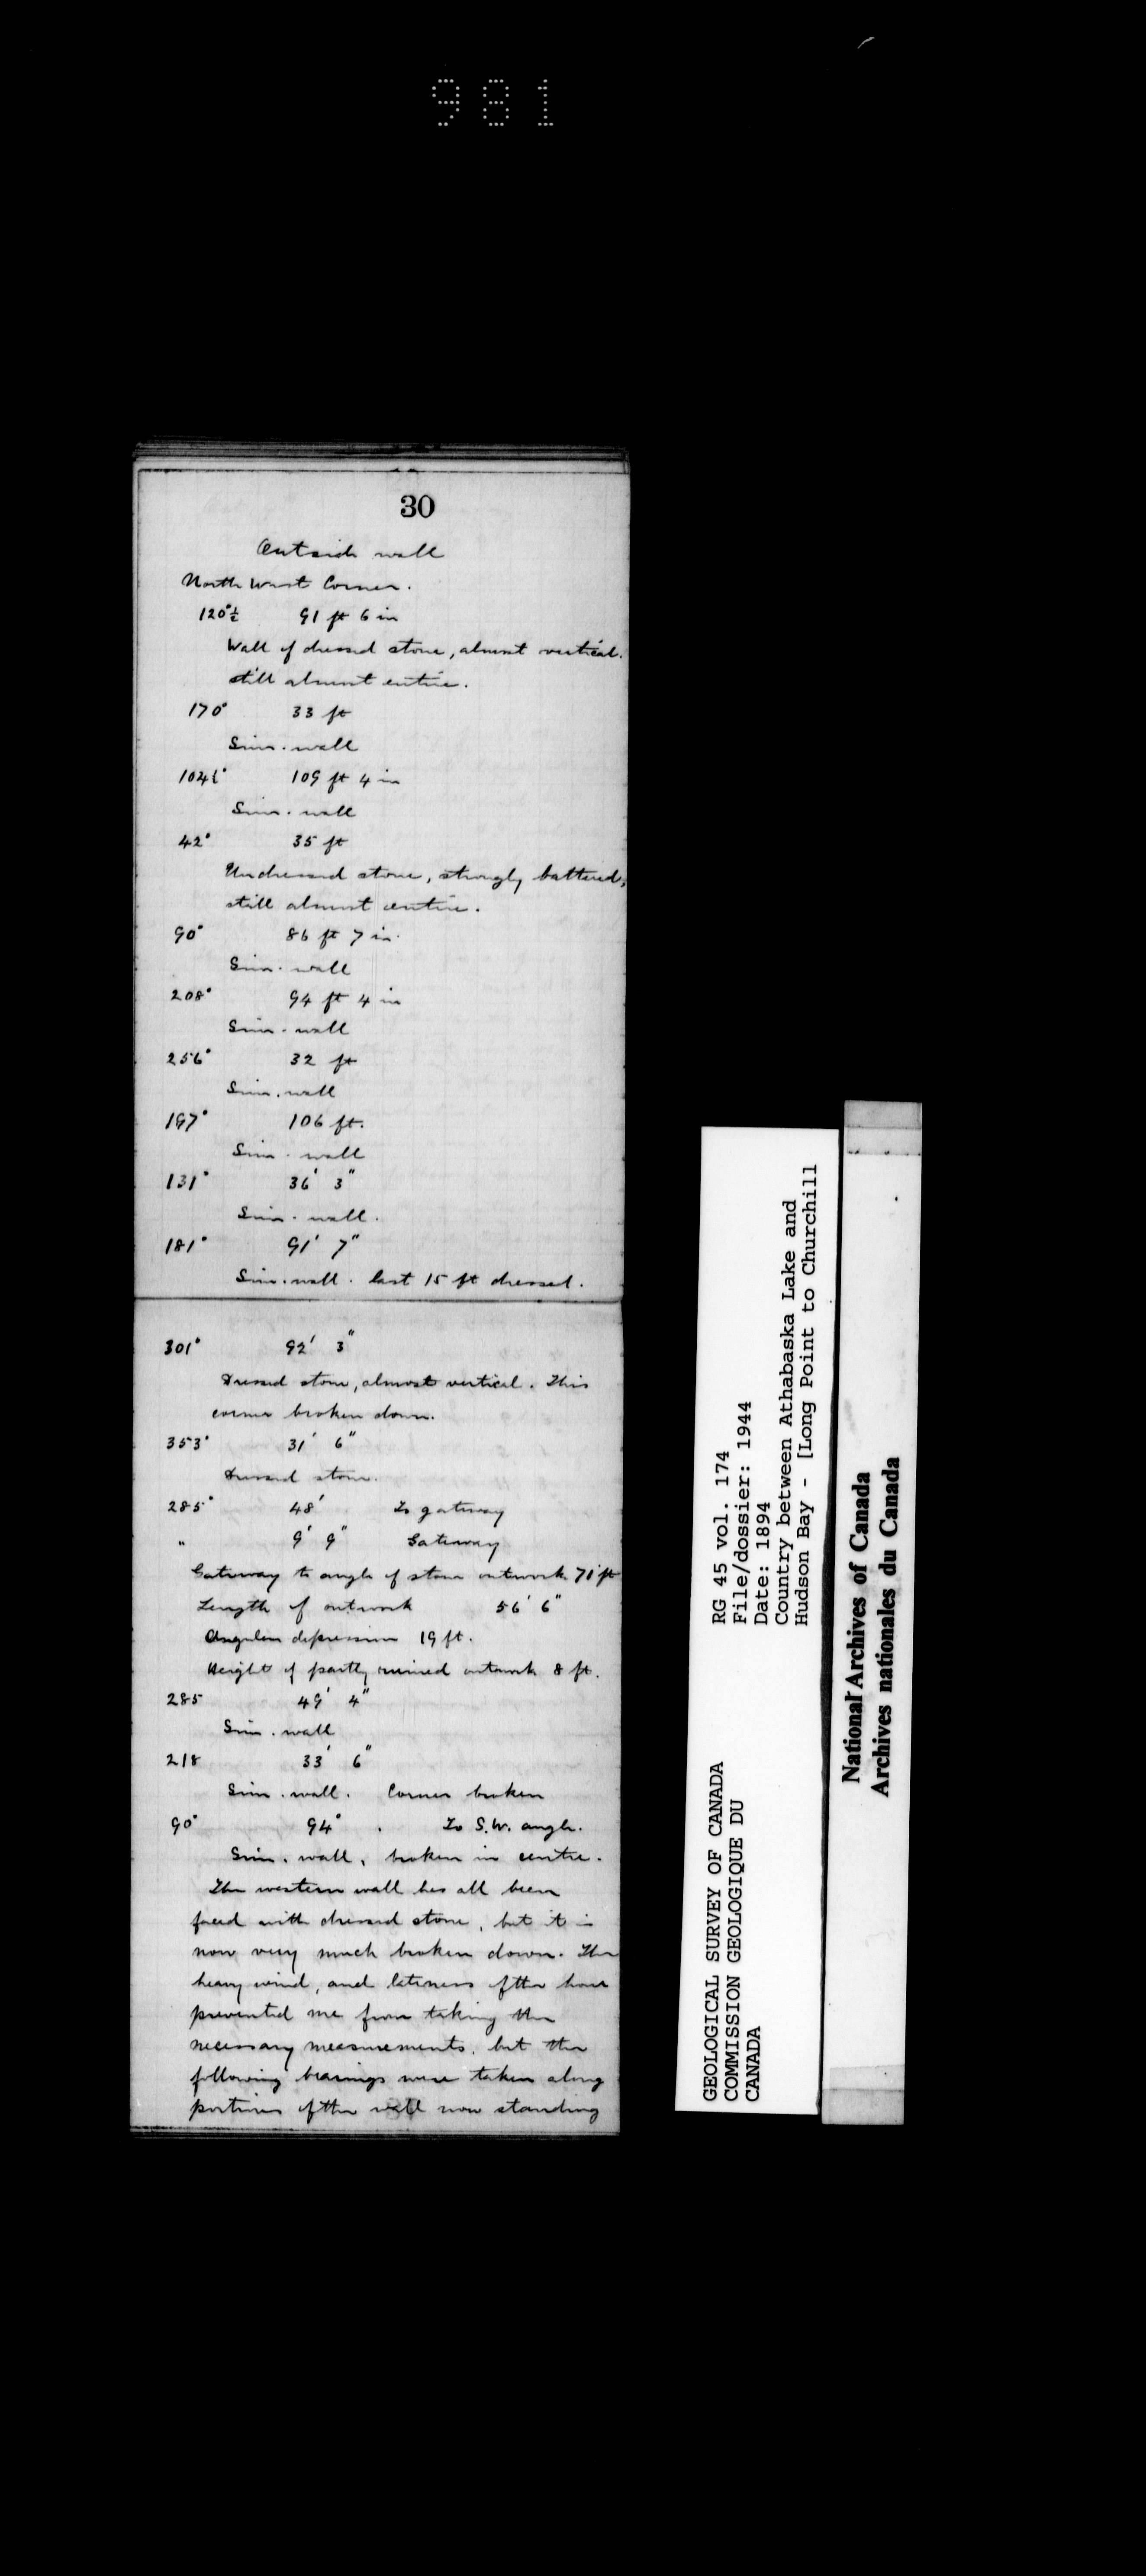 981
30
Outside wall
North West Corner.
120°½ 91 ft 6 in
Wall of dressed stone, almost vertical.
still almost entire.
170° 33 ft
Sim. wall
104½° 109 ft 4 in
Sim. wall
42° 35 ft
Undressed stone, strongly battered,
still almost entire.
90° 86 ft 7 in.
Sim. wall
208° 94 ft 4 in
Sim. wall
256° 32 ft
Sim. wall
197° 106 ft.
Sim. wall
131° 36' 3"
Sim. wall.
181° 91' 7"
Sim. wall. last 15 ft dressed.
301° 92' 3"
Dressed stone, almost vertical. This
corner broken down.
353° 31' 6"
Dressed stone.
285° 48' To gateway
" 9' 9" Gateway
Gateway to angle of stone outwork 71 ft
Length of outwork 56' 6"
Angular depression 19 ft.
Height of partly ruined outwork 8 ft.
285 49' 4"
Sim. wall
218 33' 6"
Sim. wall. Corner broken
90° 94° . To S.W. angle.
Sim. wall, broken in centre.
The western wall has all been
faced with dressed stone, but it is
now very much broken down. The
heavy wind, and lateness of the hour
prevented me from taking the
necessary measurements, but the
following bearings were taken along
portions of the wall now standing
GEOLOGICAL SURVEY OF CANADA
COMMISSION GEOLOGIQUE DU
CANADA
RG 45 vol. 174
File/dossier: 1944
Date: 1894
Country between Athabaska Lake and
Hudson Bay - [Long Point to Churchill
National Archives of Canada
Archives nationales du Canada